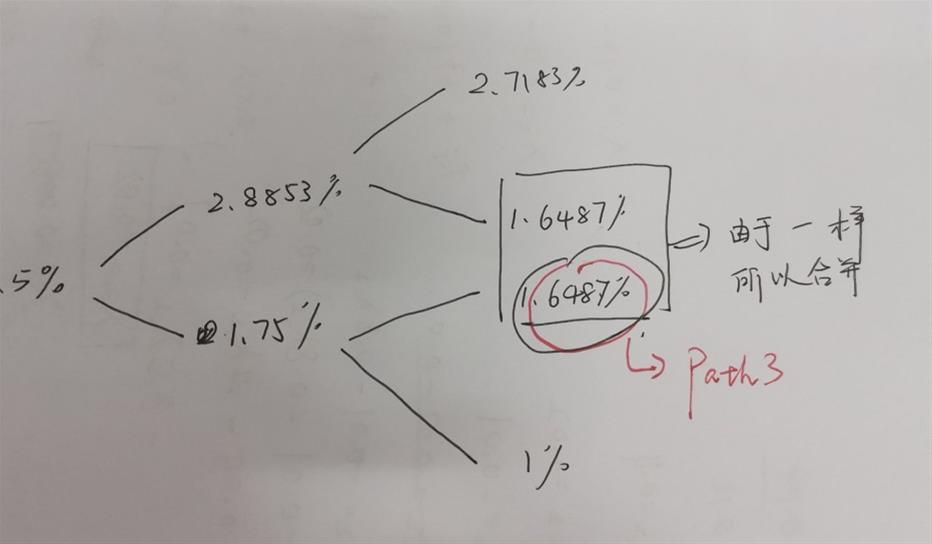 2.7183%
2.8853%
1.6487%
.5%
1.6487%
1.75%
1%
⇒ 由于一样
所以合并
Path3